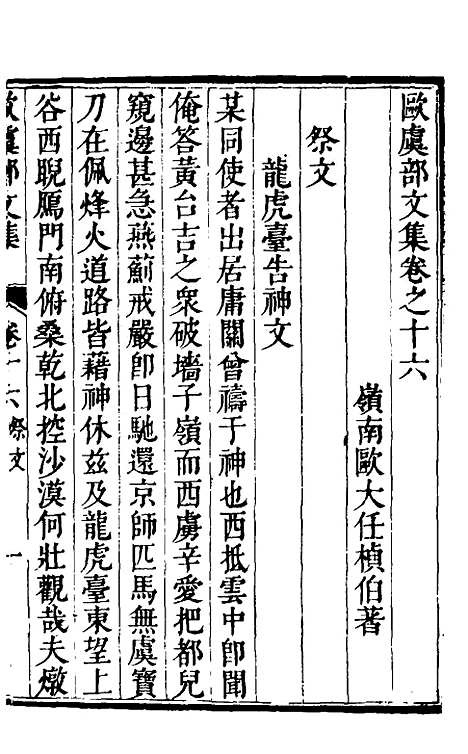 歐虞部文集卷之十六
嶺南歐大任楨伯著
祭文
龍虎臺告神文
某同使者出居庸關曾禱于神也西抵雲中卽聞
俺答黃台吉之衆破墻子嶺而西虜辛愛把都兒
窺邊甚急燕薊戒嚴卽日馳還京師匹馬無虞寶
刀在佩烽火道路皆藉神休茲及龍虎臺東望上
谷西睨鴈門南俯桑乾北控沙漠何壯觀哉夫燉
虞部文集
卷十六 祭文 一